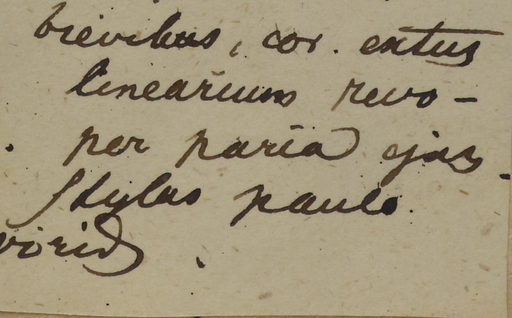 brevibus, cor. extus
linearium revo-
per paria ejus-
Stylus paulo
virid